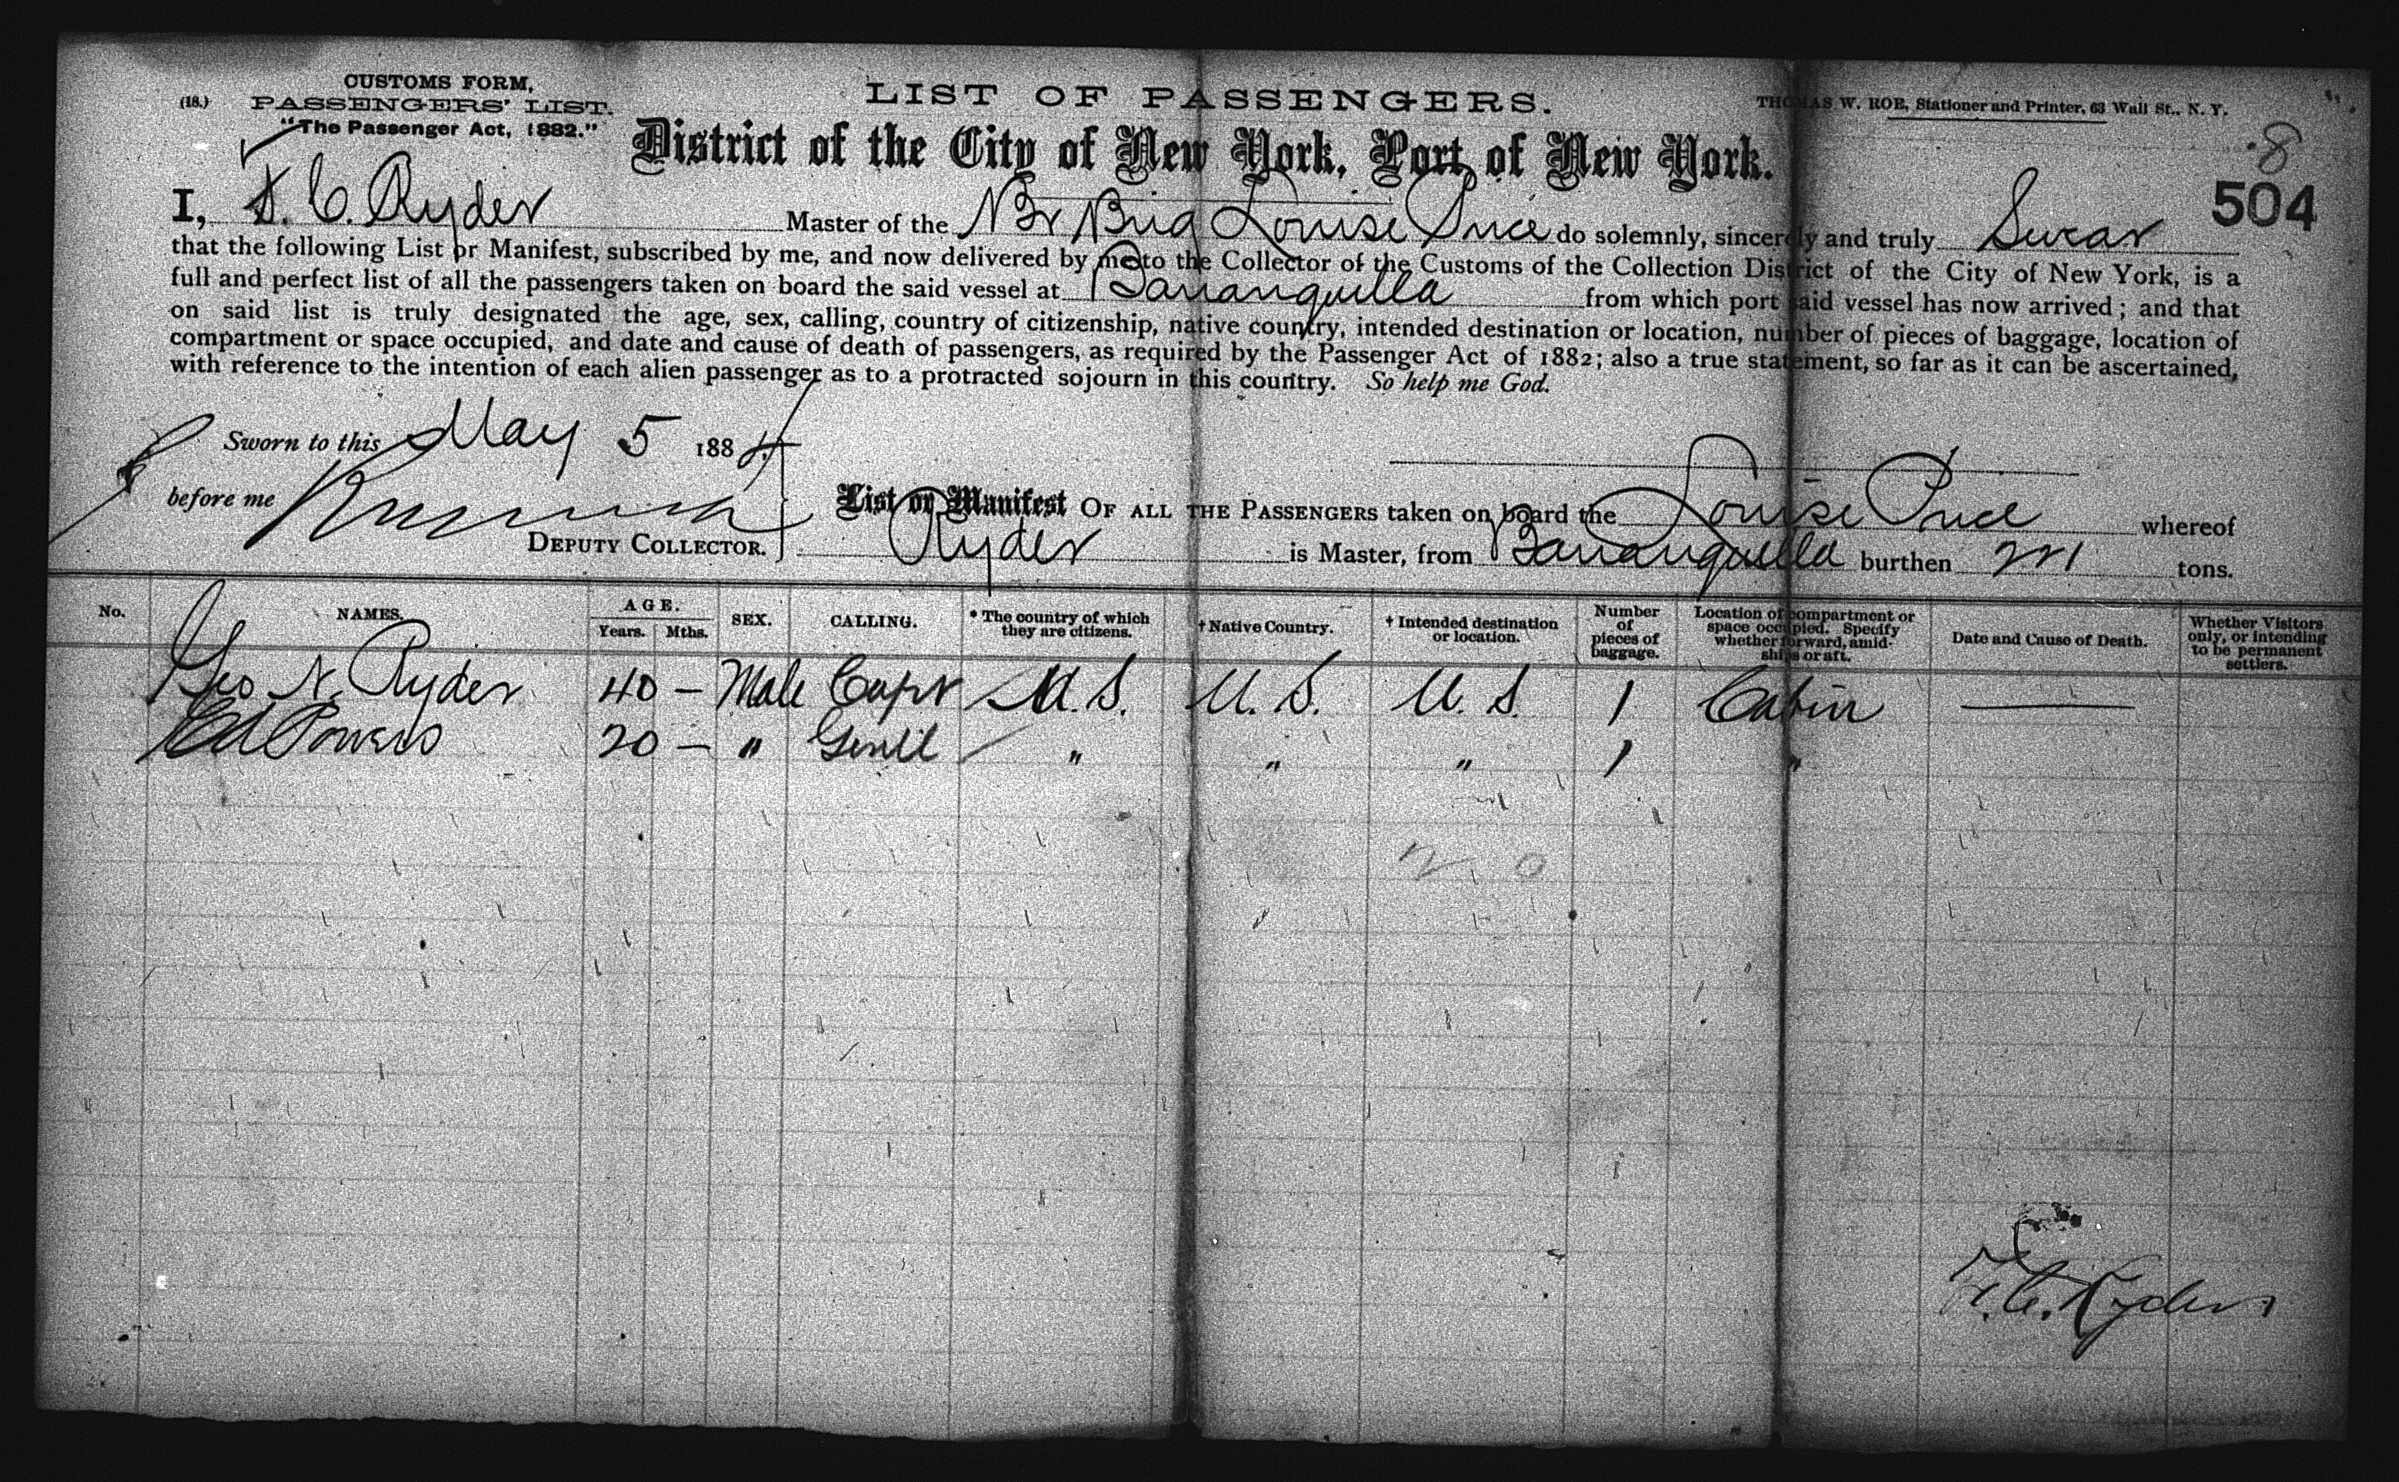 CUSTOMS FORM,
(18.) PASSENGERS' LIST.
"The Passenger Act, 1882."
LIST OF PASSENGERS.
THOMAS W. ROE, Stationer and Printer, 63 Wall St., N. Y.
District of the City of New York, Port of New York.
8
504
I, F. C. Ryder Master of the Br Brig Louise Price do solemnly, sincerely and truly Swear
that the following List or Manifest, subscribed by me, and now delivered by me to the Collector of the Customs of the Collection District of the City of New York, is a
full and perfect list of all the passengers taken on board the said vessel at Barranquilla from which port said vessel has now arrived; and that
on said list is truly designated the age, sex, calling, country of citizenship, native country, intended destination or location, number of pieces of baggage, location of
compartment or space occupied, and date and cause of death of passengers, as required by the Passenger Act of 1882; also a true statement, so far as it can be ascertained,
with reference to the intention of each alien passenger as to a protracted sojourn in this country. So help me God.
Sworn to this May 5 1884
before me
DEPUTY COLLECTOR.
List or Manifest OF ALL THE PASSENGERS taken on board the Louise Price whereof
Ryder is Master, from Barranquilla burthen tons.
No. NAMES. AGE. Years. Mths. SEX. CALLING. * The country of which they are citizens. † Native Country. † Intended destination or location. Number of pieces of baggage. Location of compartment or space occupied. Specify whether forward, amidships or aft. Date and Cause of Death. Whether Visitors only, or intending to be permanent settlers.
Geo N. Ryder 40 — Male Capt U.S. U.S. U.S. 1 Cabin —
Ed Powers 20 — " Gentl " " " 1 "
2 0
F. C. Ryder